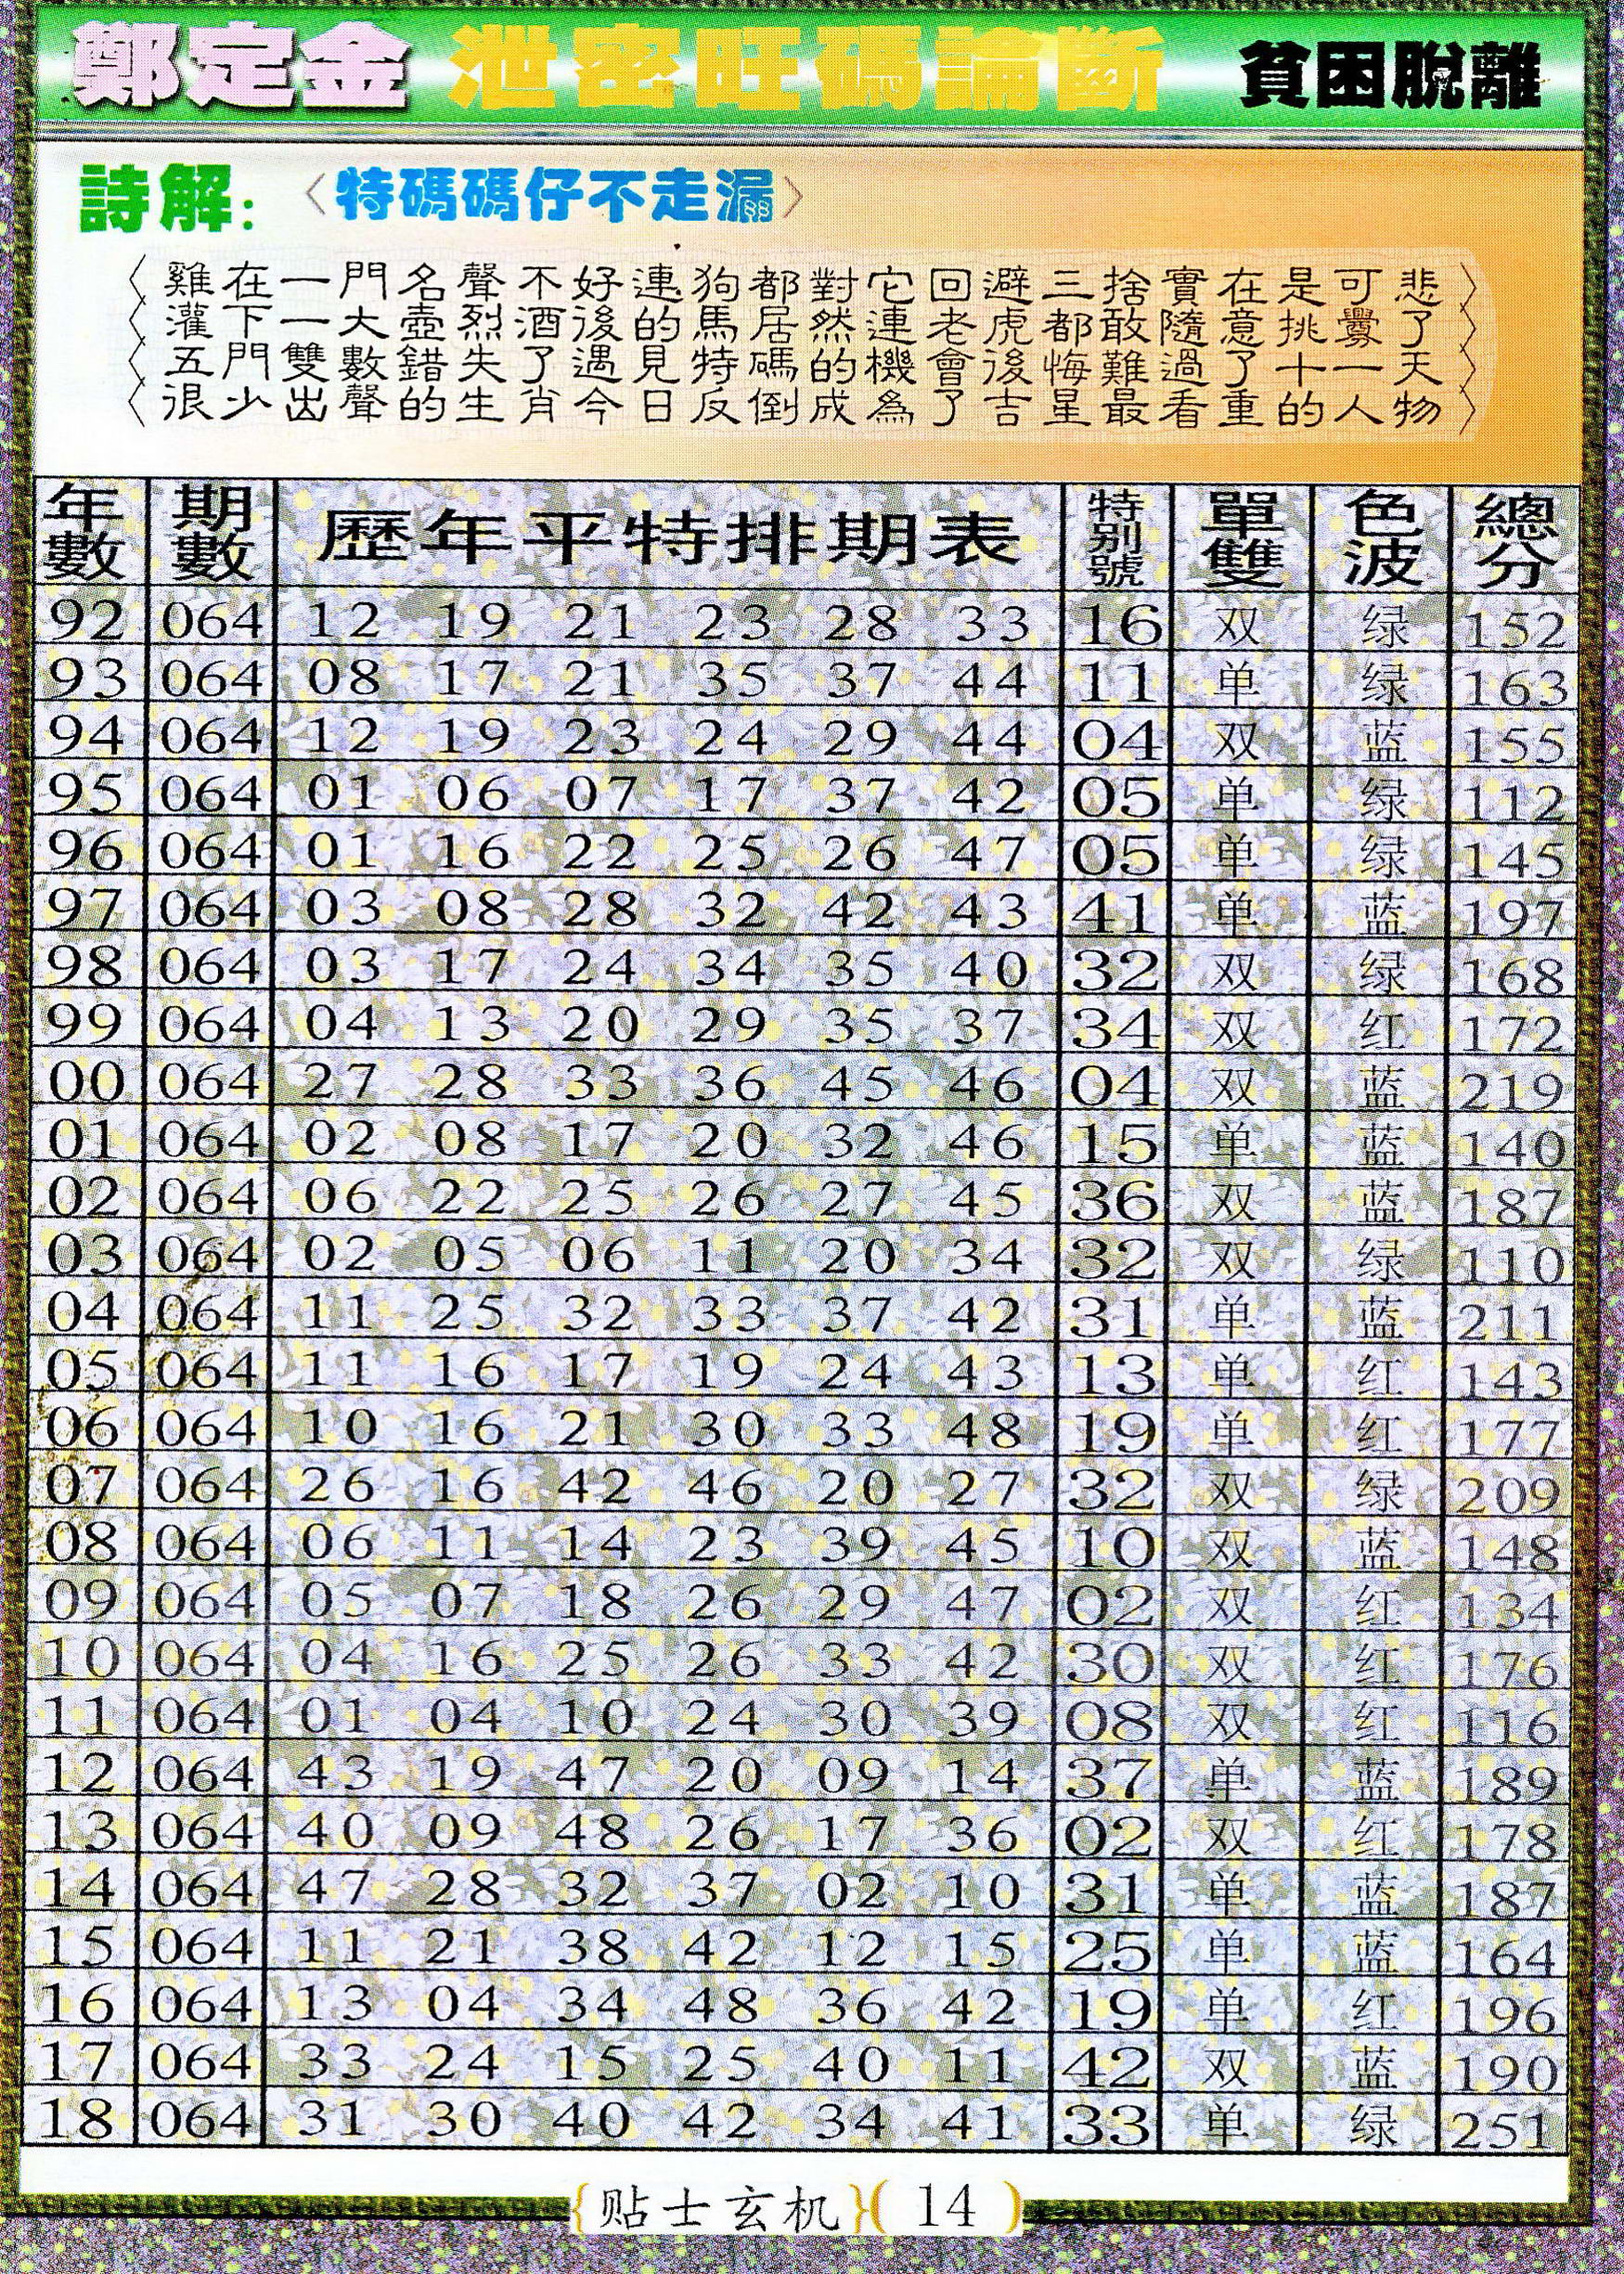 鄭定金 泄密旺碼論斷 貧困脫離
詩解: 〈特碼碼仔不走漏〉
〈雞在一門名聲不好連狗都對它回避三捨實在是可悲〉
〈灌下一大壺烈酒後的馬居然連老虎都敢隨意挑釁了〉
〈五門雙數錯失了遇見特碼的機會後悔難過了十一天〉
〈很少出聲的生肖今日反倒成為了吉星最看重的人物〉
年數 期數 歷年平特排期表 特别號 單雙 色波 總分
92 064 12 19 21 23 28 33 16 双 绿 152
93 064 08 17 21 35 37 44 11 单 绿 163
94 064 12 19 23 24 29 44 04 双 蓝 155
95 064 01 06 07 17 37 42 05 单 绿 112
96 064 01 16 22 25 26 47 05 单 绿 145
97 064 03 08 28 32 42 43 41 单 蓝 197
98 064 03 17 24 34 35 40 32 双 绿 168
99 064 04 13 20 29 35 37 34 双 红 172
00 064 27 28 33 36 45 46 04 双 蓝 219
01 064 02 08 17 20 32 46 15 单 蓝 140
02 064 06 22 25 26 27 45 36 双 蓝 187
03 064 02 05 06 11 20 34 32 双 绿 110
04 064 11 25 32 33 37 42 31 单 蓝 211
05 064 11 16 17 19 24 43 13 单 红 143
06 064 10 16 21 30 33 48 19 单 红 177
07 064 26 16 42 46 20 27 32 双 绿 209
08 064 06 11 14 23 39 45 10 双 蓝 148
09 064 05 07 18 26 29 47 02 双 红 134
10 064 04 16 25 26 33 42 30 双 红 176
11 064 01 04 10 24 30 39 08 双 红 116
12 064 43 19 47 20 09 14 37 单 蓝 189
13 064 40 09 48 26 17 36 02 双 红 178
14 064 47 28 32 37 02 10 31 单 蓝 187
15 064 11 21 38 42 12 15 25 单 蓝 164
16 064 13 04 34 48 36 42 19 单 红 196
17 064 33 24 15 25 40 11 42 双 蓝 190
18 064 31 30 40 42 34 41 33 单 绿 251
{贴士玄机}( 14 )